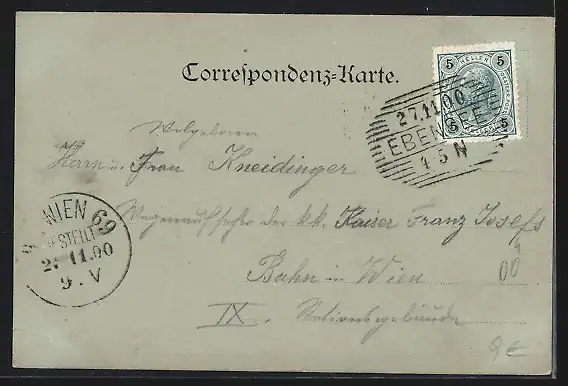 Correspondenz-Karte.
5 HELLER 5
5 5
27.11.00
EBENSEE
4-5 N
Wolgeboren
Herrn u. Frau Kneidinger
Wagenaufseher der k.k. Kaiser Franz Josefs
Bahn in Wien
IX. Stationsgebäude
WIEN 69
BESTELLT
2. 11.00
9. V
00
9€